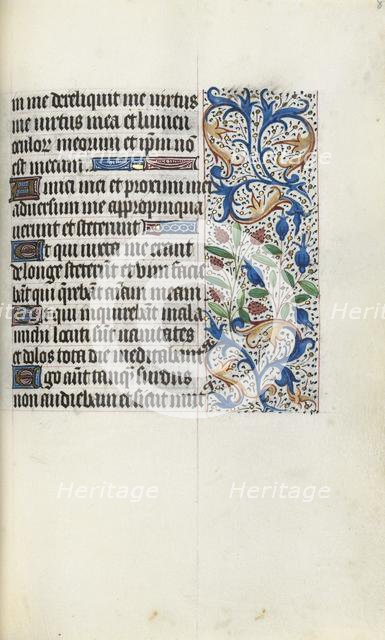 8
in me dereliquit me virtus
me virtus mea et lumen
oculor meorum et ipm no
est mecum
Amici mei et proximi mei
adversum me appropinqua
verunt et steterunt
Et qui iuxta me erant
de longe steterunt et vim facie
bāt qui querebāt aīam meam
Et qui inquirebant mala
michi locuti sunt vanitates
et dolos tota die meditabantur
Ego aūt tanqȝ surdus
non audiebam et sicut mut
Heritage Heritage
Heritage Heritage
Heritage Heritage